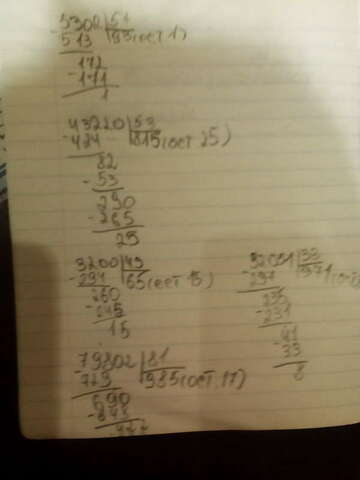 5302|57
-513 93(ост 1)
172
-171
1
43220|53
-424 815(ост 25)
82
-53
290
-265
25
3200|49
-294 65(ост 15)
260
-245
15
32051|33
-297 971(ост
235
-231
41
-33
8
79802|81
-729 985(ост.17)
690
-648